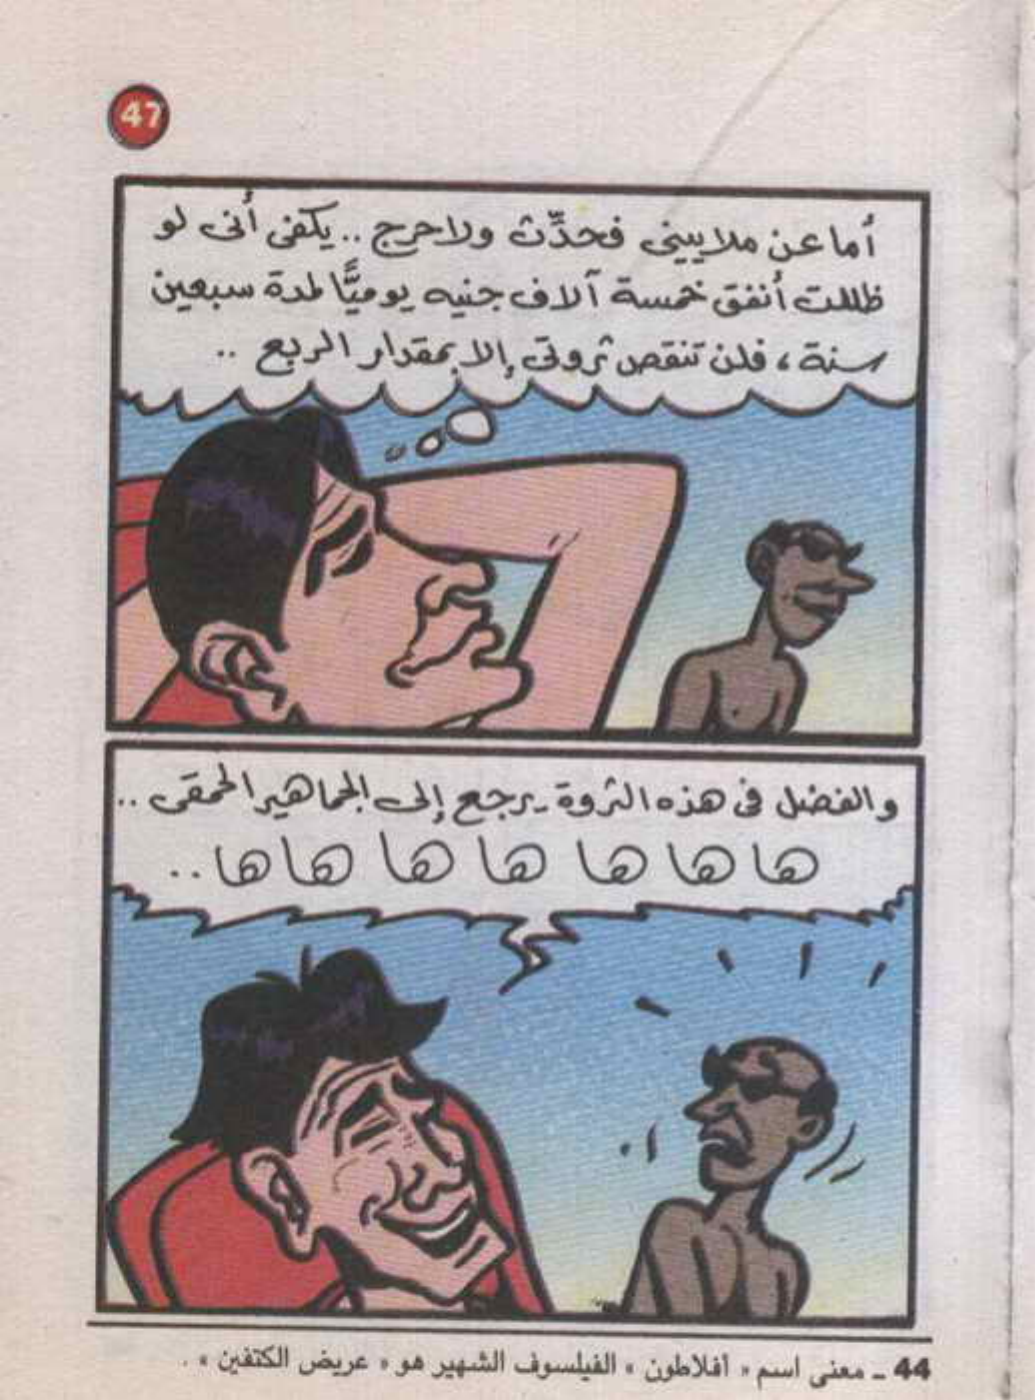 47
أما عن ملاييني فحدِّث ولا حرج .. يكفى أنى لو
ظللت أنفق خمسة آلاف جنيه يوميًّا لمدة سبعين
سنة ، فلن تنقص ثروتى إلا بمقدار الربع ..
والفضل فى هذه الثروة يرجع إلى الجماهير الحمقى ..
ها ها ها ها ها ها ها ..
44 ـ معنى اسم « أفلاطون » الفيلسوف الشهير هو « عريض الكتفين » .